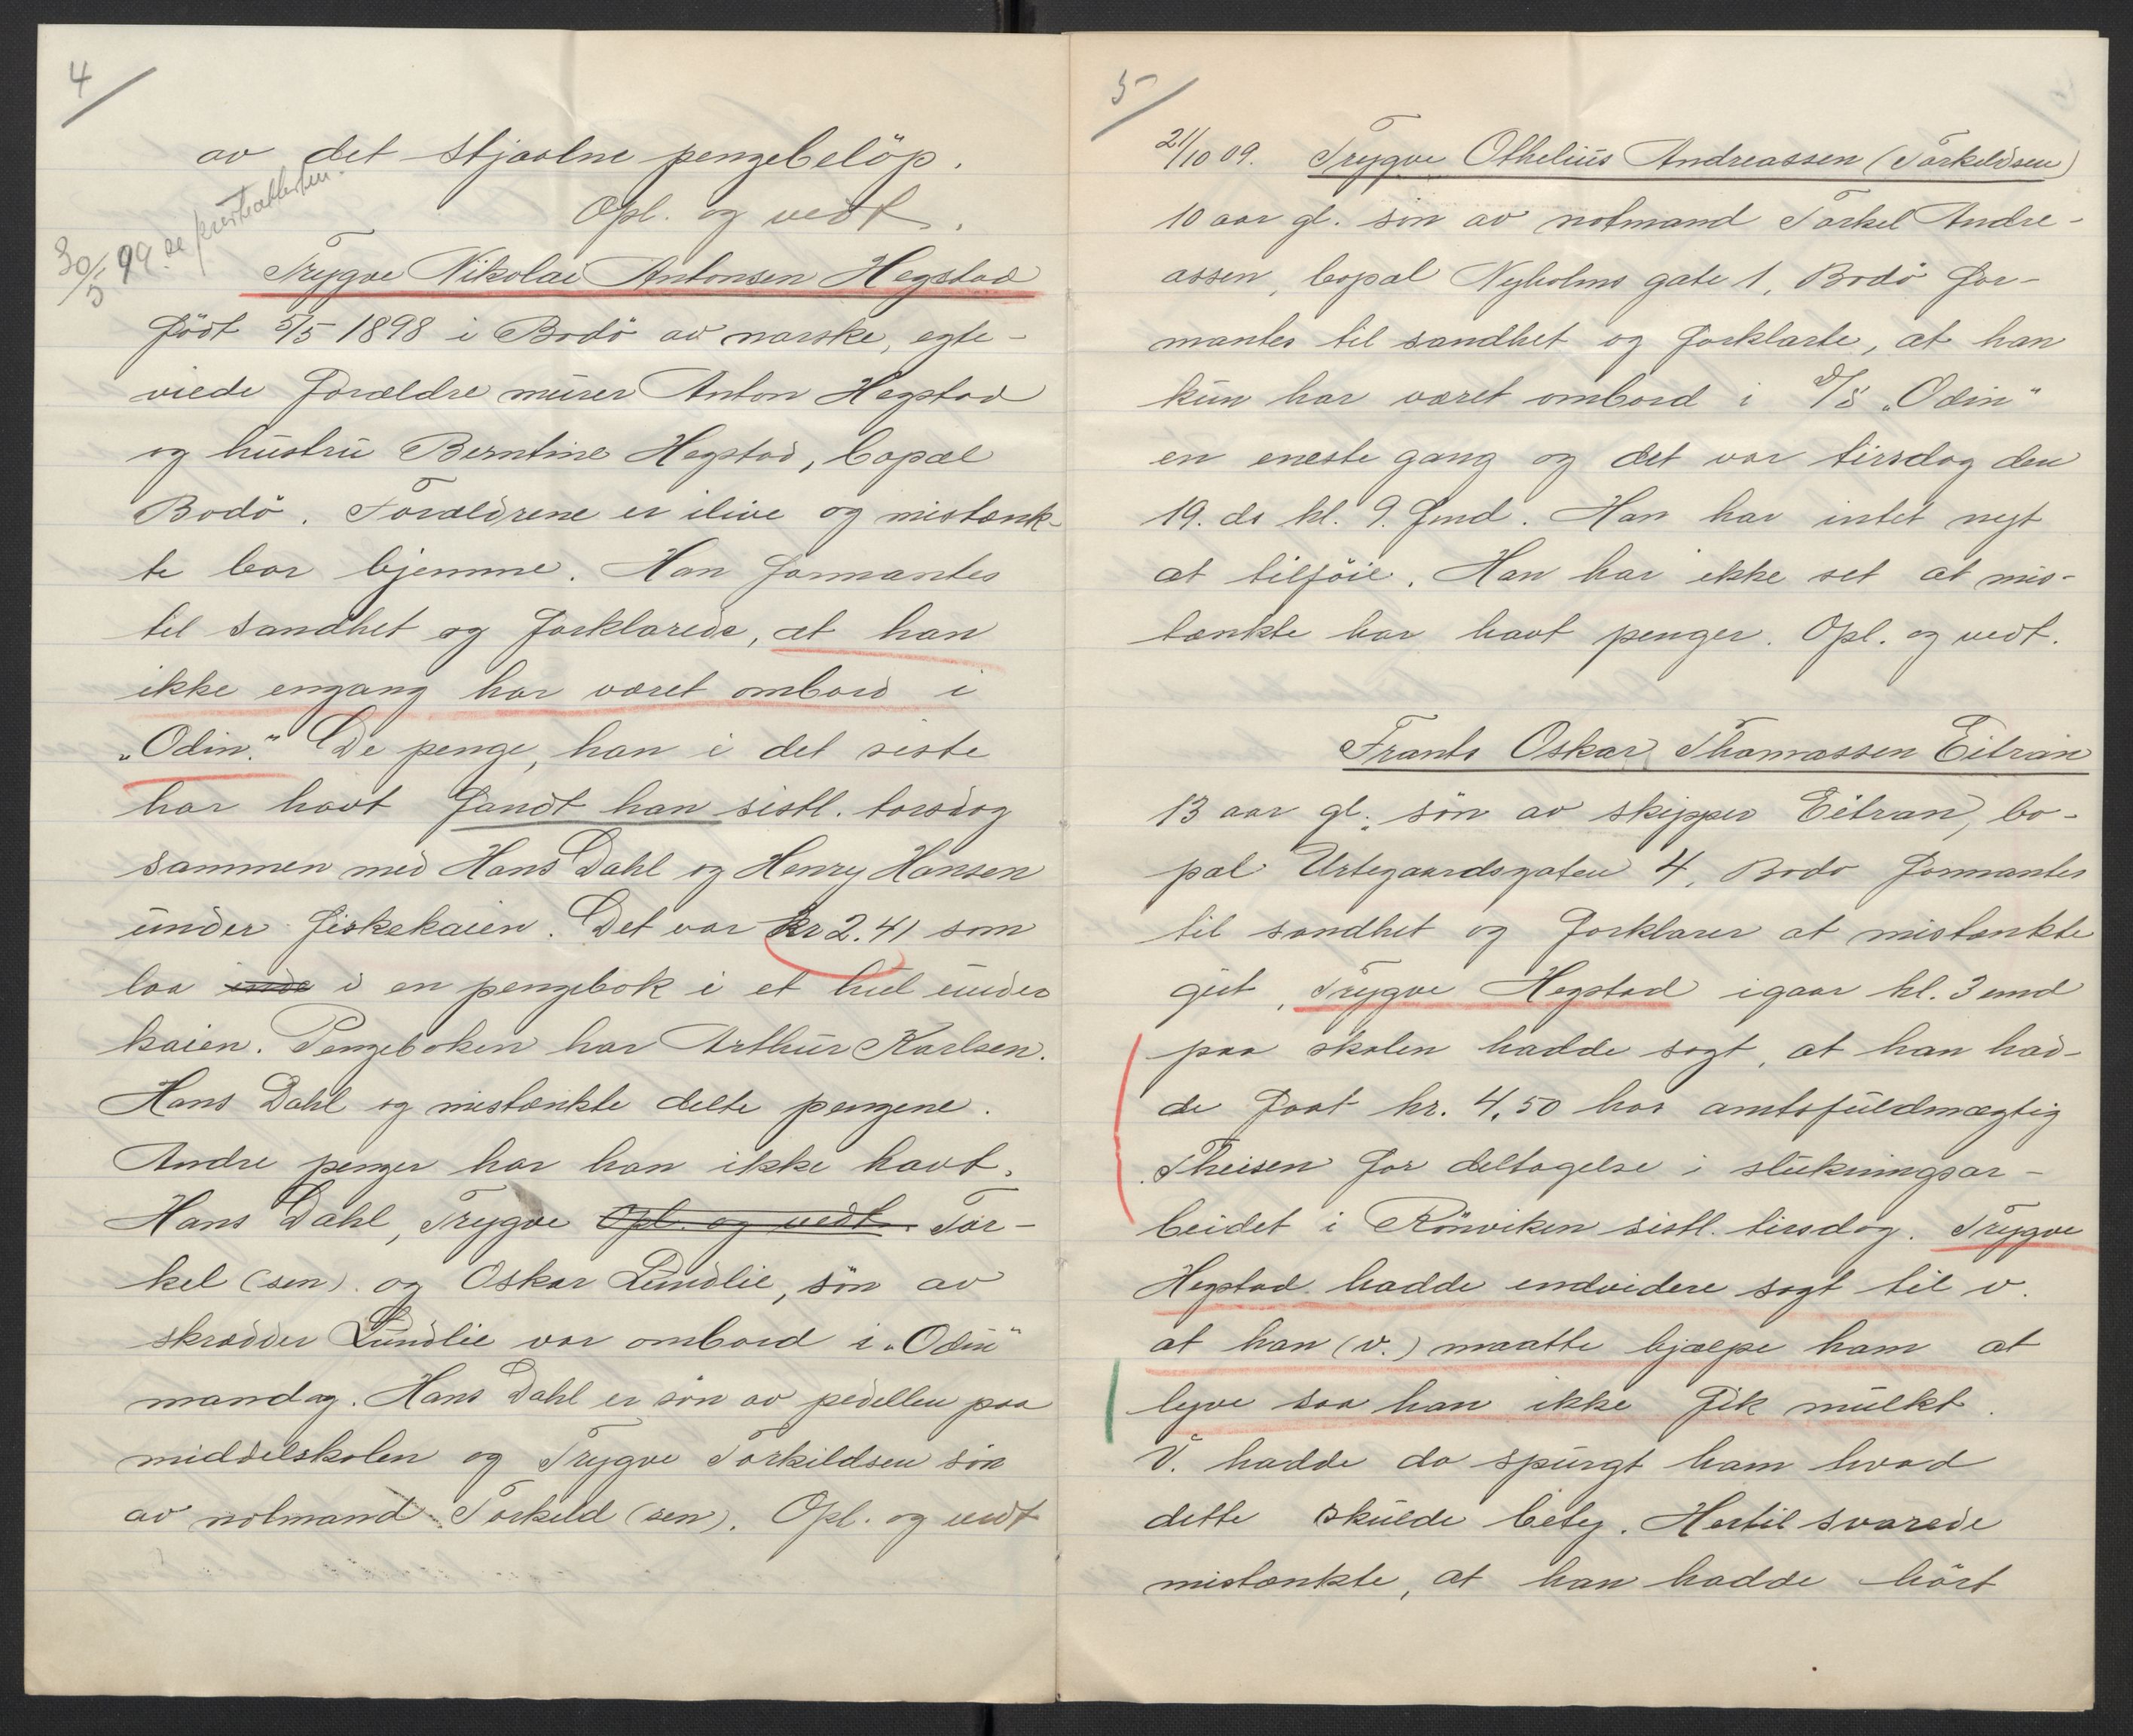 4
av det stjaalne pengebelöp.
Opl. og vedt.
30/5 99 se presteattesten.
Trygve Nikolai Antonsen Hegstad
född 5/5 1898 i Bodö av norske, egte-
viede forældre murer Anton Hegstad
og hustru Berntine Hegstad, bopæl
Bodö. Forældrene er ilive og mistænk-
te bor hjemme. Han formantes
til sandhet og forklarede, at han
ikke engang har været ombord i
„Odin." De penge, han i det siste
har havt fandt han sistl. torsdag
sammen med Hans Dahl og Henry Hansen
under fiskekaien. Det var kr 2.41 som
laa inde i en pengebok i et hul under
kaien. Pengeboken har Arthur Karlsen.
Hans Dahl og mistænkte delte pengene.
Andre penger har han ikke havt.
Hans Dahl, Trygve Opl. og vedt. Tor-
kel (sen). og Oskar Lundlie, sön av
skrædder Lundlie var ombord i „Odin"
mandag. Hans Dahl er sön av pedellen paa
middelskolen og Trygve Torkildsen sön
av notmand Torkeld (sen). Opl. og vedt
5
21/10 09. Trygve Othelius Andreassen (Torkeldsen)
10 aar gl. sön av notmand Torkel Andre-
assen, bopæl Nyholms gate 1, Bodö for-
mantes til sandhet og forklarte, at han
kun har været ombord i D/S „Odin"
en eneste gang og det var tirsdag den
19. ds kl. 9. fmd. Han har intet nyt
at tilföie. Han har ikke set at mis-
tænkte har havt penger. Opl. og vedt.
Frants Oskar Thomassen Eitran
13 aar gl. sön av skipper Eitran, bo-
pæl Urtegaardsgaten 4, Bodö formantes
til sandhet og forklarer at mistænkte
gut, Trygve Hegstad igaar kl. 3 emd
paa skolen hadde sagt, at han had-
de faat kr. 4,50 hos amtsfuldmægtig
Theisen for deltagelse i slukningsar-
beidet i Rönviken sistl. tirsdag. Trygve
Hegstad hadde endvidere sagt til v.
at han (v.) maatte hjælpe ham at
lyve saa han ikke fik mulkt.
V. hadde da spurgt ham hvad
dette skulde bety. Hertil svarede
mistænkte, at han hadde hört